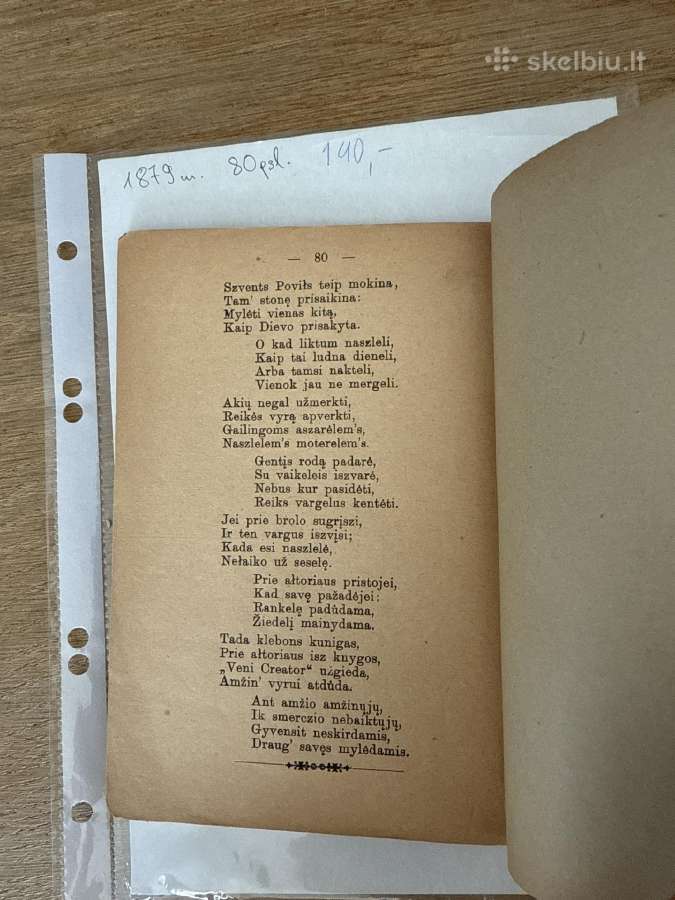 skelbiu.lt
1879 m. 80 psl. 140,-
— 80 —
Szvents Poviłs teip mokina,
Tam' stonę prisaikina:
Mylėti vienas kitą,
Kaip Dievo prisakyta.
O kad liktum naszleli,
Kaip tai ludna dieneli,
Arba tamsi nakteli,
Vienok jau ne mergeli.
Akių negal užmerkti,
Reikės vyrą apverkti,
Gailingoms aszarėlem's,
Naszlelem's moterelem's.
Gentįs rodą padarė,
Su vaikeleis iszvarė,
Nebus kur pasidėti,
Reiks vargelus kentėti.
Jei prie brolo sugrįszi,
Ir ten vargus iszvįsi;
Kada esi naszlelė,
Nełaiko už seselę.
Prie ałtoriaus pristojei,
Kad savę pažadėjei:
Rankelę padůdama,
Žiedelį mainydama.
Tada klebons kunigas,
Prie ałtoriaus isz knygos,
„Veni Creator“ užgieda,
Amžin' vyrui atdůda.
Ant amžio amžinųjų,
Ik smerczio nebaiktųjų,
Gyvensit neskirdamis,
Draug' savęs mylėdamis.